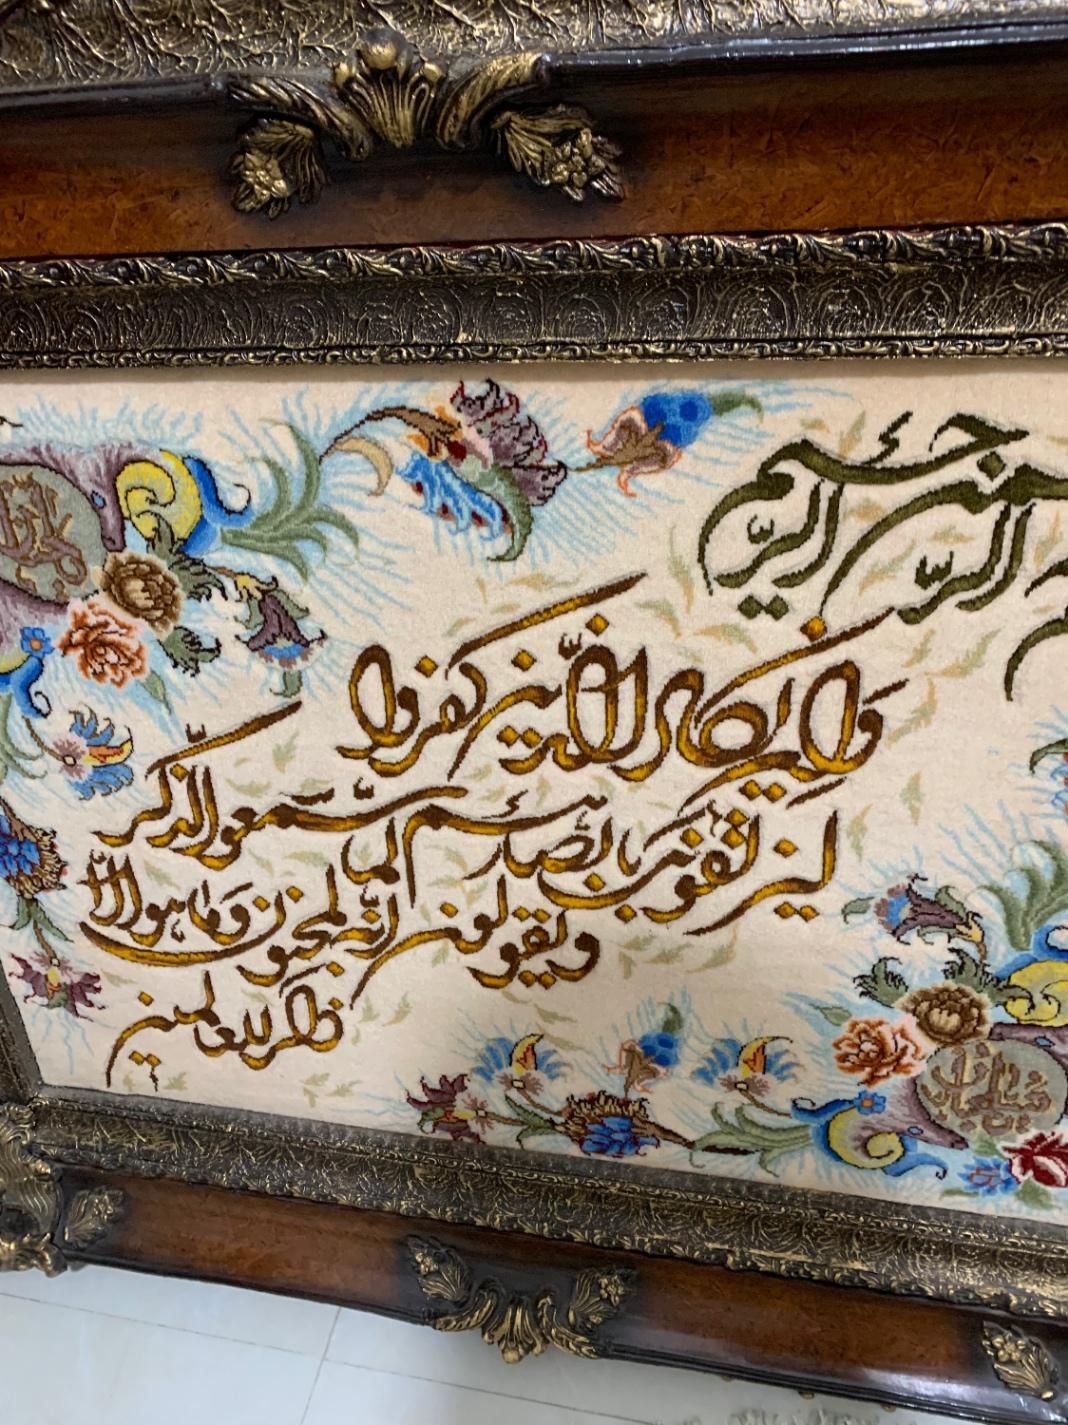 الرحمن الرحيم
وان يكاد الذين كفروا
ليزلقونك بابصارهم لما سمعوا الذكر
ويقولون انه لمجنون وما هو الا
ذكر للعالمين